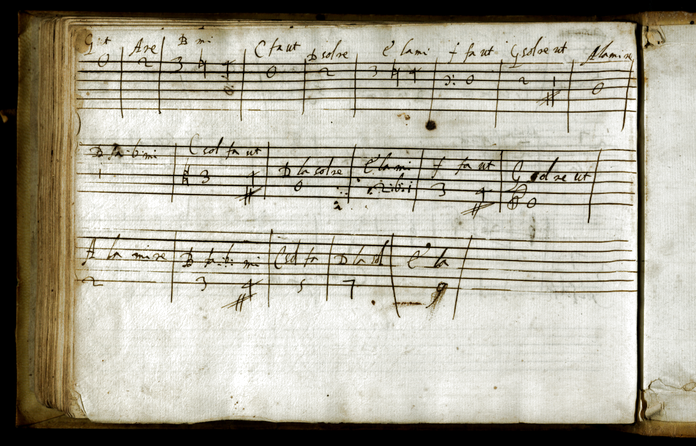 G ut A re B mi C fa ut D sol re E la mi F fa ut G sol re ut A la mi re
0 2 3 4 0 2 3 4 3 0 2 1 0
B fa b mi C sol fa ut D la sol re E la mi F fa ut G sol re ut
1 3 4 0 3 4 0
A la mi re B fa b mi C sol fa D la sol E la
2 3 4 5 7 9